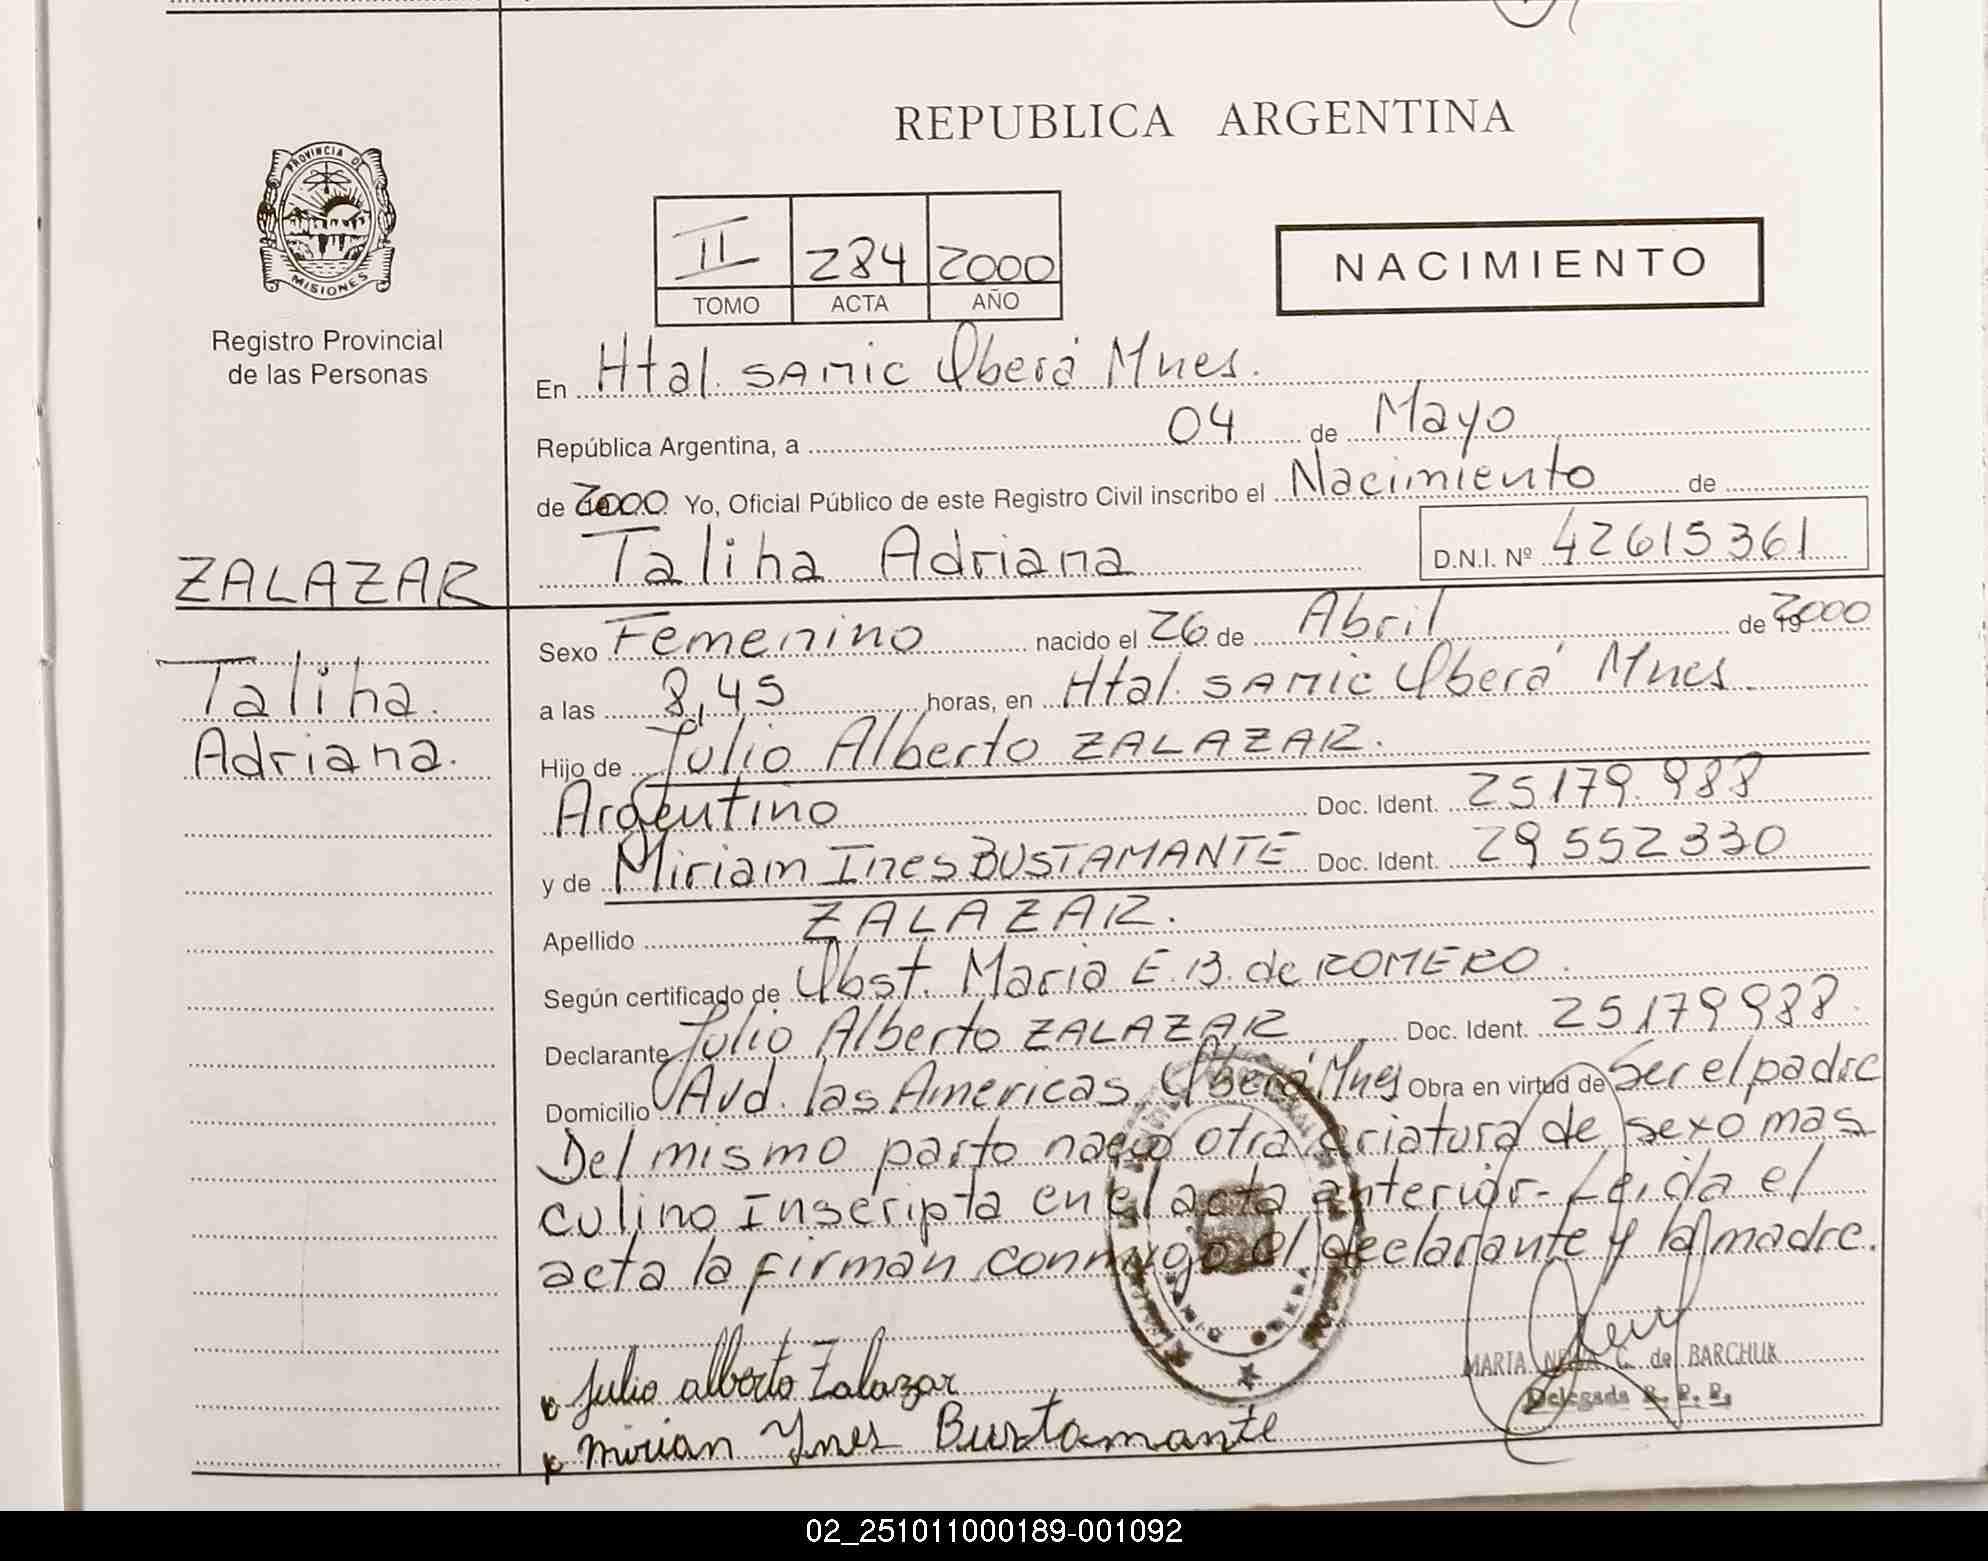 REPUBLICA ARGENTINA
PROVINCIA DE
MISIONES
Registro Provincial
de las Personas
II 284 2000
TOMO ACTA AÑO
NACIMIENTO
En Htal. SAMIC Oberá Mnes.
República Argentina, a 04 de Mayo
de 2000 Yo, Oficial Público de este Registro Civil inscribo el Nacimiento de
Taliha Adriana D.N.I. Nº 42615361
ZALAZAR
Taliha.
Adriana.
Sexo Femenino nacido el 26 de Abril de 2000
a las 8,45 horas, en Htal. SAMIC Oberá Mnes.
Hijo de Julio Alberto ZALAZAR.
Argentino Doc. Ident. 25179.988
y de Miriam Ines BUSTAMANTE Doc. Ident. 29552330
Apellido ZALAZAR.
Según certificado de Obst. Maria E. B. de ROMERO.
Declarante Julio Alberto ZALAZAR Doc. Ident. 25179988.
Domicilio Avd. las Americas Oberá Mnes Obra en virtud de Ser el padre
Del mismo parto nacio otra criatura de sexo mas
culino Inscripta en el acta anterior- Leida el
acta la firman conmigo el declarante y la madre.
Julio alberto Zalazar
mirian Ynes Bustamante
MARTA C. de BARCHUK
Delegada R. P. P.
02_251011000189-001092